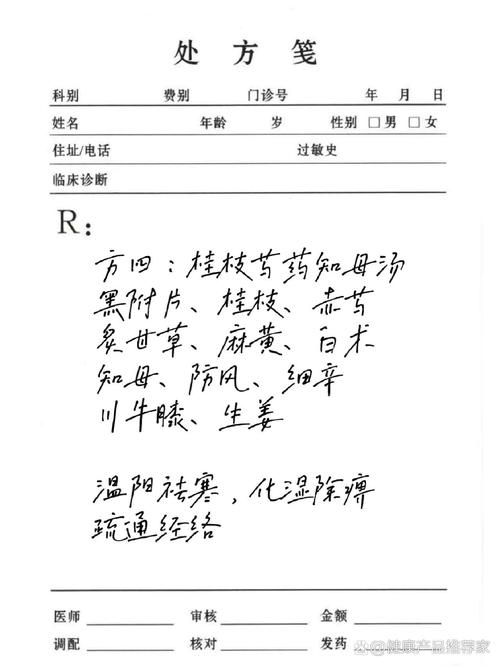 处方笺
科别 费别 门诊号 年 月 日
姓名 年龄 岁 性别 □男 □女
住址/电话 过敏史
临床诊断
R:
方四:桂枝芍药知母汤
黑附片、桂枝、赤芍
炙甘草、麻黄、白术
知母、防风、细辛
川牛膝、生姜
温阳祛寒,化湿除痹
疏通经络
医师 审核 金额
调配 核对 发药
健康产品推荐家